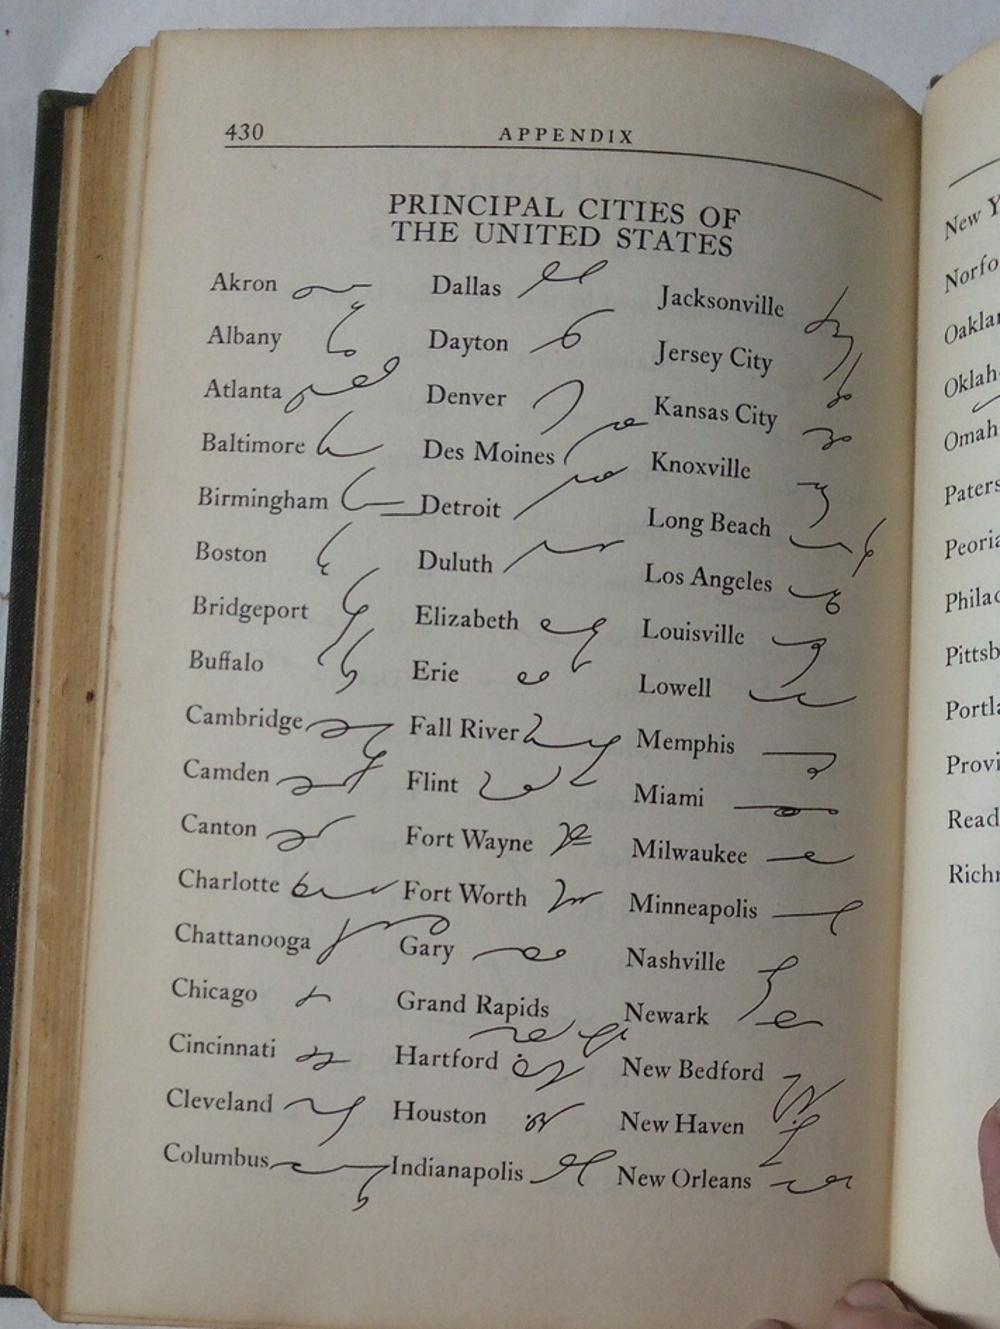 430 APPENDIX
PRINCIPAL CITIES OF
THE UNITED STATES
Akron
Albany
Atlanta
Baltimore
Birmingham
Boston
Bridgeport
Buffalo
Cambridge
Camden
Canton
Charlotte
Chattanooga
Chicago
Cincinnati
Cleveland
Columbus
Dallas
Dayton
Denver
Des Moines
Detroit
Duluth
Elizabeth
Erie
Fall River
Flint
Fort Wayne
Fort Worth
Gary
Grand Rapids
Hartford
Houston
Indianapolis
Jacksonville
Jersey City
Kansas City
Knoxville
Long Beach
Los Angeles
Louisville
Lowell
Memphis
Miami
Milwaukee
Minneapolis
Nashville
Newark
New Bedford
New Haven
New Orleans
New Y
Norfo
Oaklan
Oklah
Omah
Paters
Peoria
Philad
Pittsb
Portla
Provi
Read
Richm